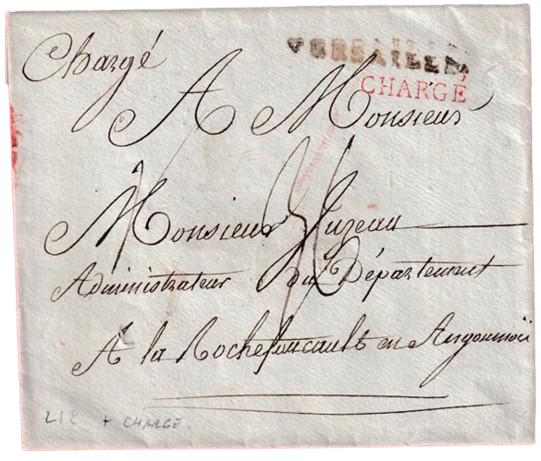 Chargé
VERSAILLES
CHARGÉ
A Monsieur
Monsieur Juzeau
Administrateur du Département
A la Rochefoucault en Angoumois
+ CHARGE.